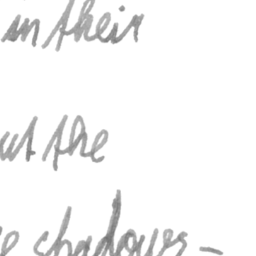 in their
the
shadows-